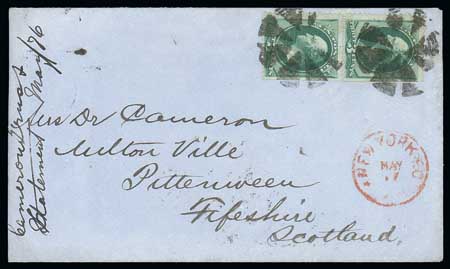 Cameron Trust
Statement May/76
Mrs Dr Cameron
Milton Ville
Pittenween
Fifeshire
Scotland.
NEW YORK
MAY